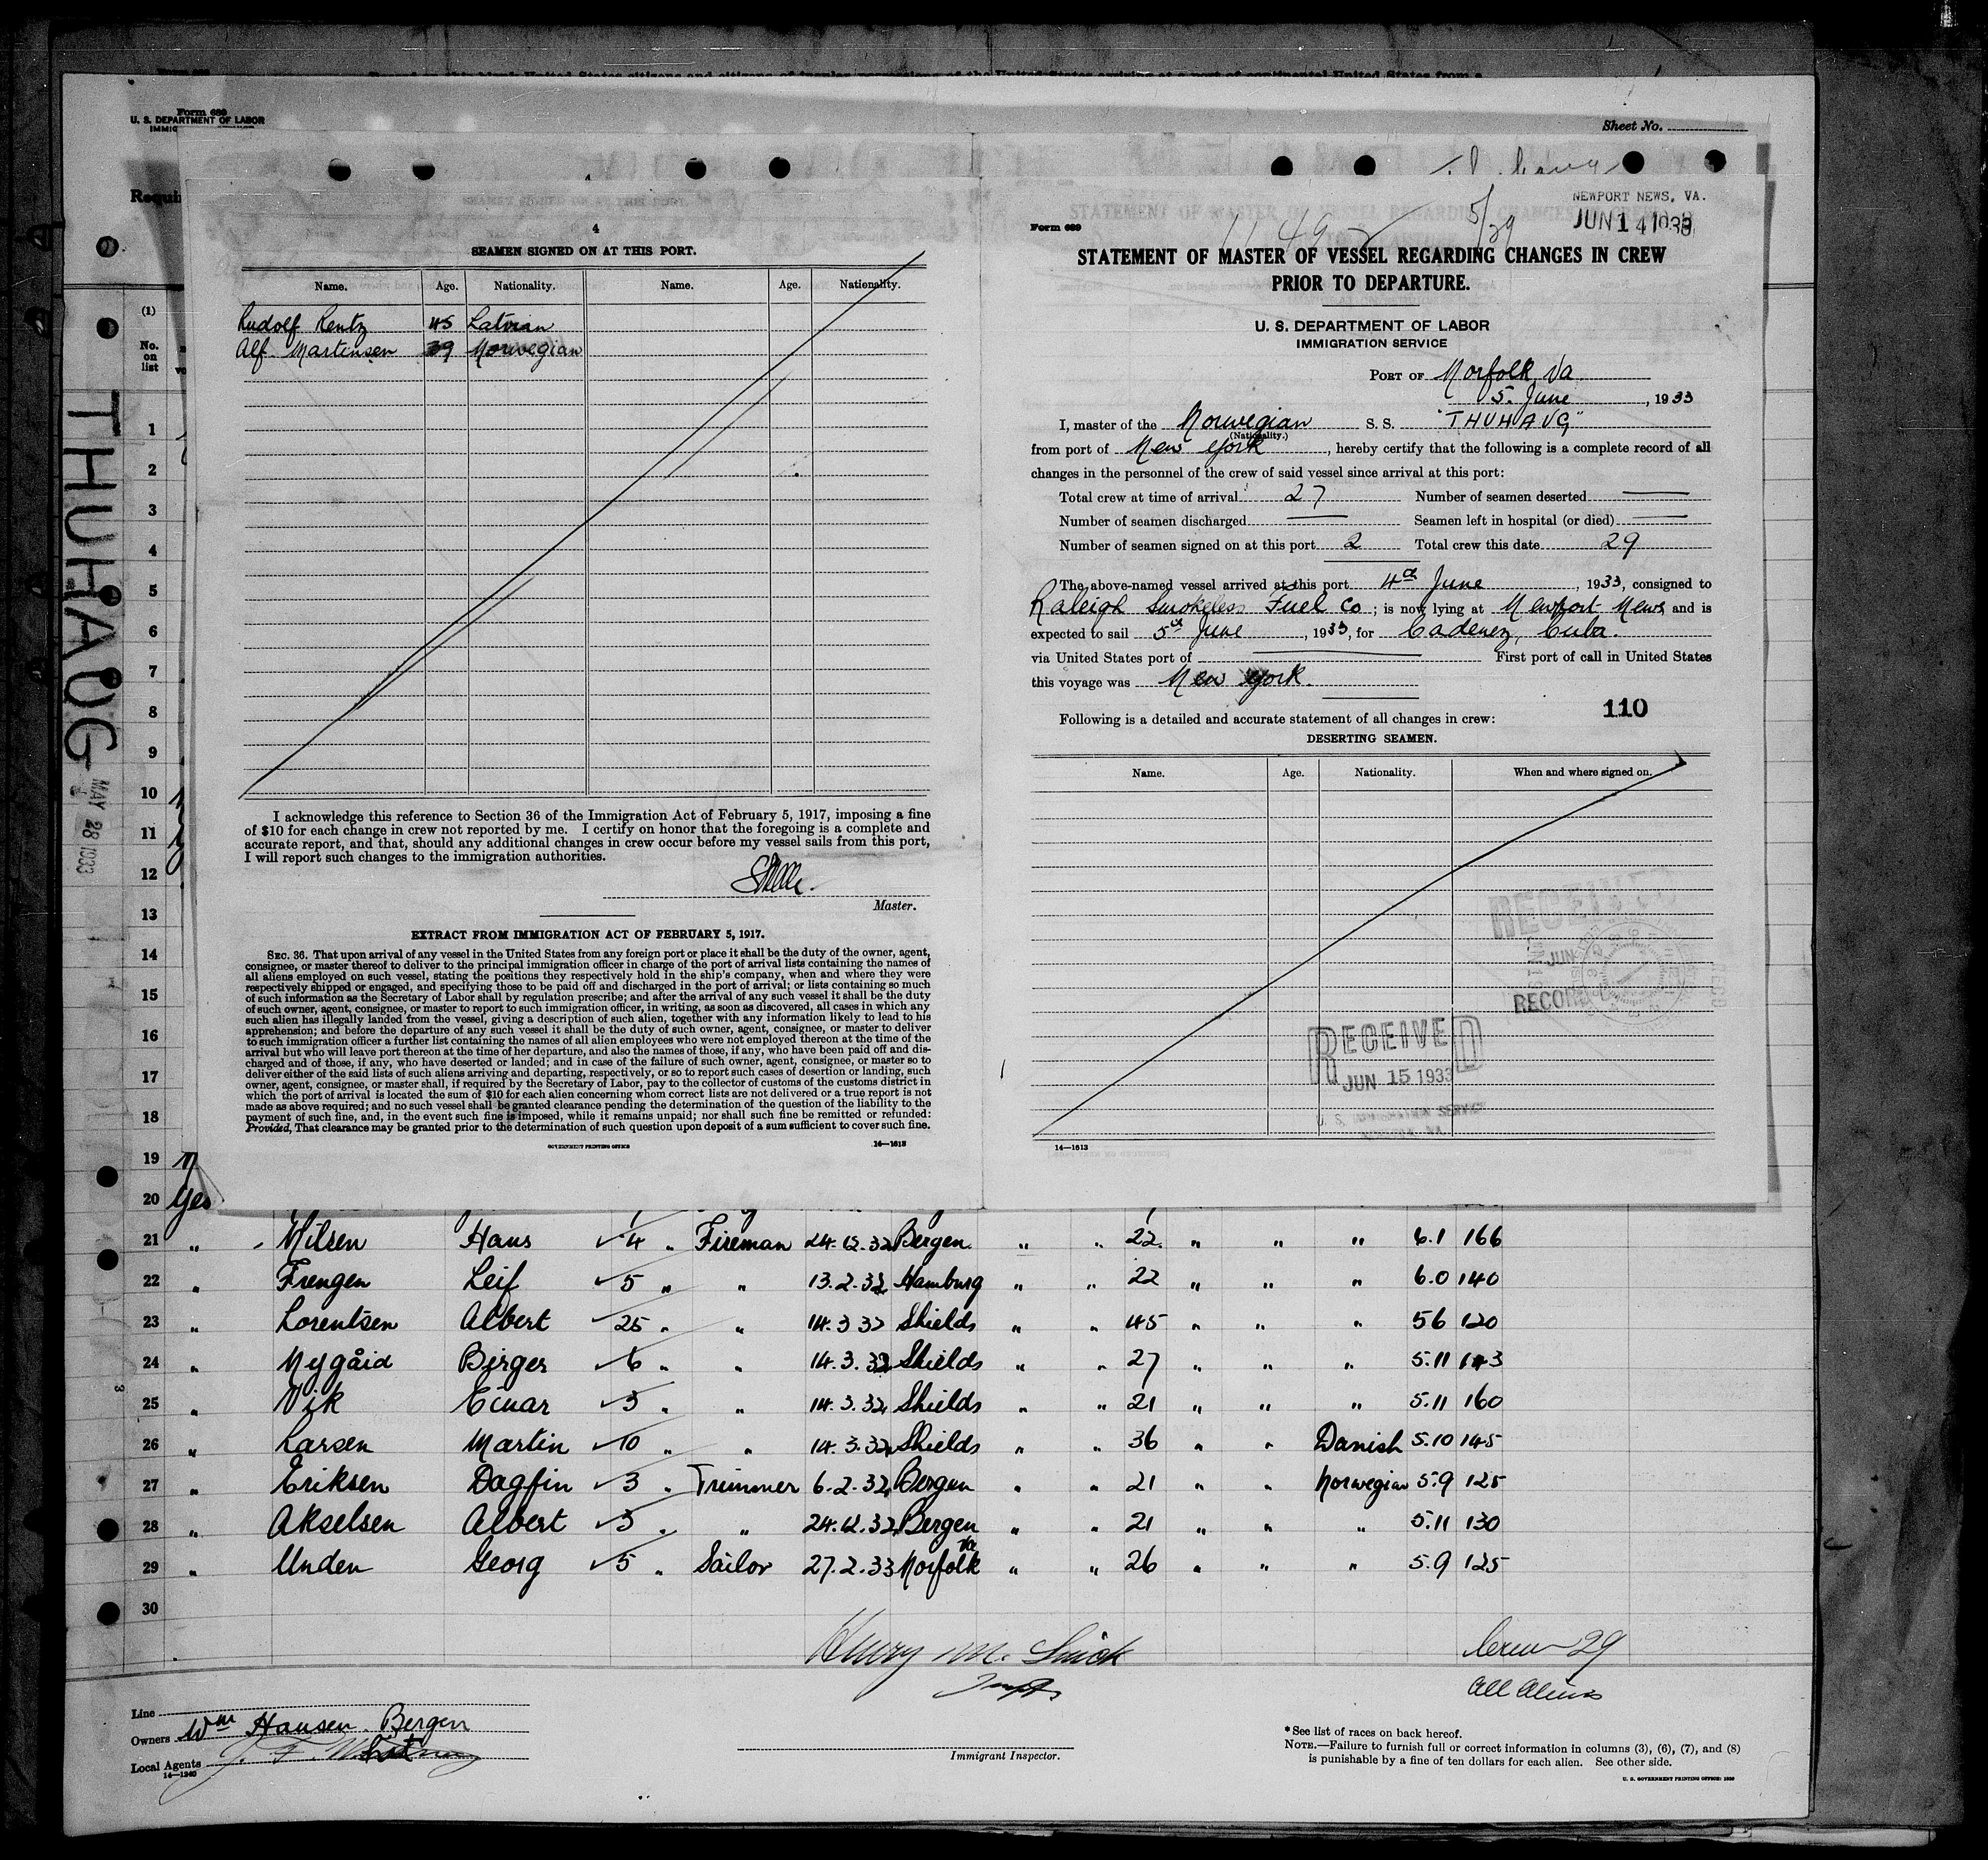 Form 689
U. S. DEPARTMENT OF LABOR
IMMIG
Sheet No.
Requir
(1)
No.
on
list
THUHAUG
MAY 28 1933
1
2
3
4
5
6
7
8
9
10
11
12
13
14
15
16
17
18
19
20 Yes
4
SEAMEN SIGNED ON AT THIS PORT.
Name. Age. Nationality. Name. Age. Nationality.
Rudolf Rentz 45 Latvian
Alf. Martinsen 39 Norwegian
I acknowledge this reference to Section 36 of the Immigration Act of February 5, 1917, imposing a fine
of $10 for each change in crew not reported by me. I certify on honor that the foregoing is a complete and
accurate report, and that, should any additional changes in crew occur before my vessel sails from this port,
I will report such changes to the immigration authorities.
Master.
EXTRACT FROM IMMIGRATION ACT OF FEBRUARY 5, 1917.
SEC. 36. That upon arrival of any vessel in the United States from any foreign port or place it shall be the duty of the owner, agent,
consignee, or master thereof to deliver to the principal immigration officer in charge of the port of arrival lists containing the names of
all aliens employed on such vessel, stating the positions they respectively hold in the ship's company, when and where they were
respectively shipped or engaged, and specifying those to be paid off and discharged in the port of arrival; or lists containing so much
of such information as the Secretary of Labor shall by regulation prescribe; and after the arrival of any such vessel it shall be the duty
of such owner, agent, consignee, or master to report to such immigration officer, in writing, as soon as discovered, all cases in which any
such alien has illegally landed from the vessel, giving a description of such alien, together with any information likely to lead to his
apprehension; and before the departure of any such vessel it shall be the duty of such owner, agent, consignee, or master to deliver
to such immigration officer a further list containing the names of all alien employees who were not employed thereon at the time of the
arrival but who will leave port thereon at the time of her departure, and also the names of those, if any, who have been paid off and dis-
charged and of those, if any, who have deserted or landed; and in case of the failure of such owner, agent, consignee, or master so to
deliver either of the said lists of such aliens arriving and departing, respectively, or so to report such cases of desertion or landing, such
owner, agent, consignee, or master shall, if required by the Secretary of Labor, pay to the collector of customs of the customs district in
which the port of arrival is located the sum of $10 for each alien concerning whom correct lists are not delivered or a true report is not
made as above required; and no such vessel shall be granted clearance pending the determination of the question of the liability to the
payment of such fine, and, in the event such fine is imposed, while it remains unpaid; nor shall such fine be remitted or refunded:
Provided, That clearance may be granted prior to the determination of such question upon deposit of a sum sufficient to cover such fine.
GOVERNMENT PRINTING OFFICE 14—1613
NEWPORT NEWS, VA.
JUN 14 1933
5/29
Form 689
STATEMENT OF MASTER OF VESSEL REGARDING CHANGES IN CREW
PRIOR TO DEPARTURE.
U. S. DEPARTMENT OF LABOR
IMMIGRATION SERVICE
PORT OF Norfolk, Va
5. June, 1933
I, master of the Norwegian S. S. "THUHAUG"
(Nationality.)
from port of New York, hereby certify that the following is a complete record of all
changes in the personnel of the crew of said vessel since arrival at this port:
Total crew at time of arrival 27 Number of seamen deserted —
Number of seamen discharged — Seamen left in hospital (or died) —
Number of seamen signed on at this port 2 Total crew this date 29
The above-named vessel arrived at this port 4th June, 1933, consigned to
Raleigh Smokeless Fuel Co; is now lying at Newport News and is
expected to sail 5th June, 1933, for Cadenez, Cuba.
via United States port of — First port of call in United States
this voyage was New York.
110
Following is a detailed and accurate statement of all changes in crew:
DESERTING SEAMEN.
Name. Age. Nationality. When and where signed on.
RECEIVED
JUN
RECORD
RECEIVED
JUN 15 1933
14—1613
21 " Nilsen Hans 4 " Fireman 24.12.32 Bergen " " 22 " " " 6.1 166
22 " Frengen Leif 5 " " 13.2.32 Hamburg " " 22 " " " 6.0 140
23 " Lorentsen Albert 25 " " 14.3 32 Shields " " 45 " " " 56 120
24 " Nygåid Birger 6 " " 14.3.32 Shields " " 27 " " " 5.11 143
25 " Vik Einar 3 " " 14.3.32 Shields " " 21 " " " 5.11 160
26 " Larsen Martin 10 " " 14.3.32 Shields " " 36 " " Danish 5.10 145
27 " Eriksen Dagfin 3 " Trimmer 6.2.32 Bergen " " 21 " " Norwegian 5.9 125
28 " Akselsen Albert 3 " " 24.12.32 Bergen " " 21 " " " 5.11 130
29 " Unden Georg 5 " Sailor 27.2.33 Norfolk Va " " 26 " " " 5.9 125
30
Henry M.
Crew 29
All Aliens
Line
Owners Wm Hansen. Bergen
Local Agents
14—1240
Immigrant Inspector.
* See list of races on back hereof.
NOTE.—Failure to furnish full or correct information in columns (3), (6), (7), and (8)
is punishable by a fine of ten dollars for each alien. See other side.
U. S. GOVERNMENT PRINTING OFFICE: